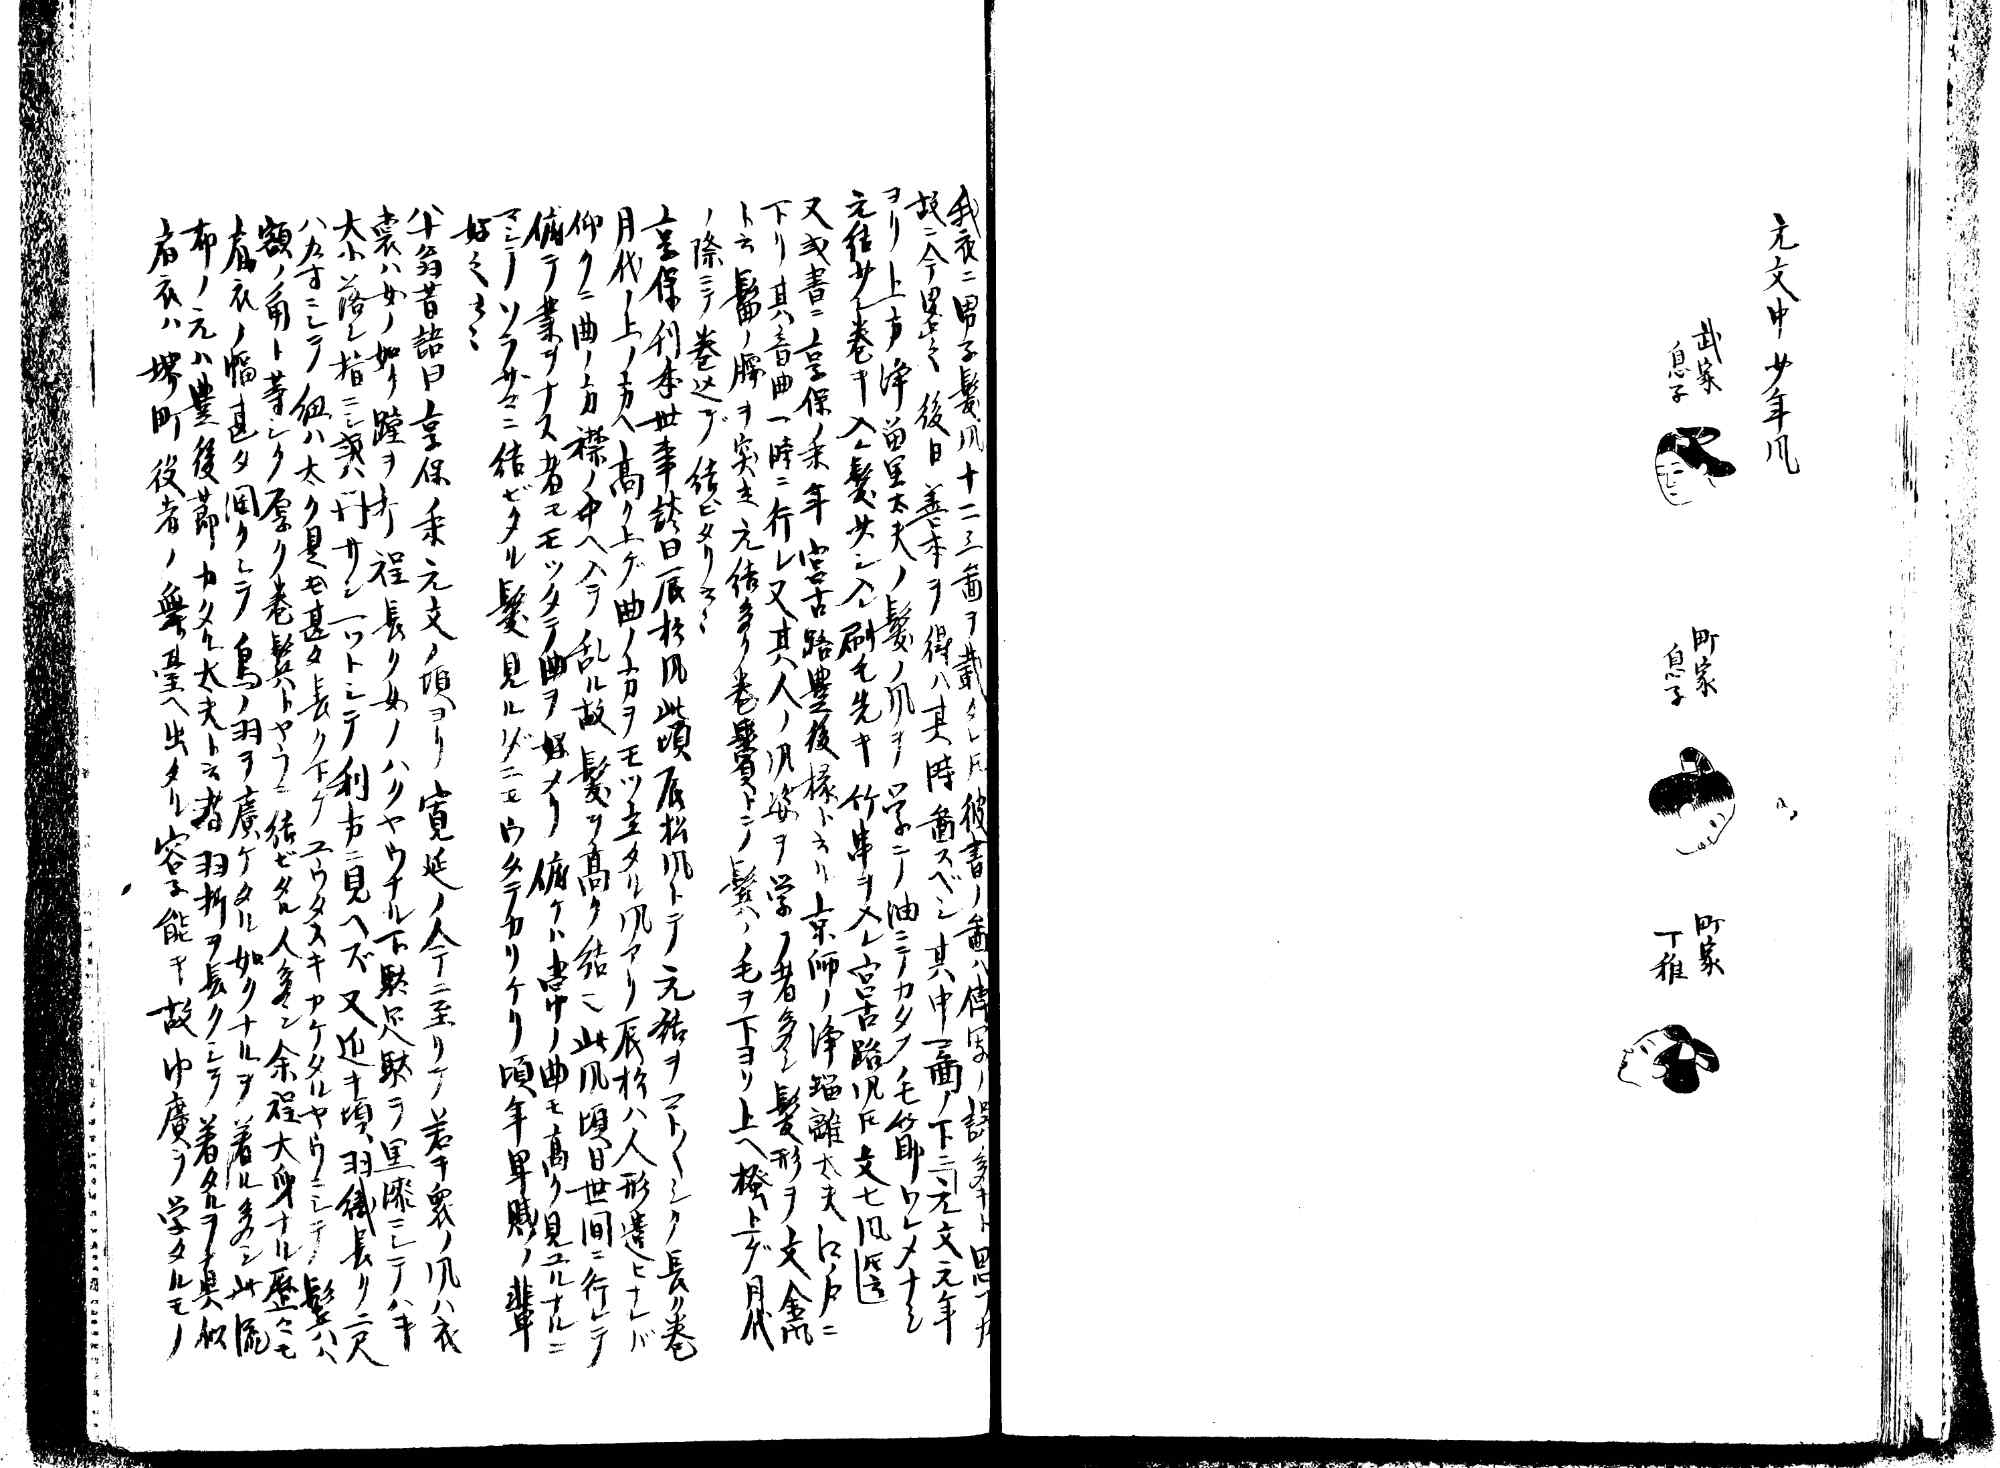 元文中少年風
武家
息子
町家
息子
町家
丁稚
我衣ニ男子髪風十二三箇ヲ載タレドモ彼書ノ畫ハ傳写ノ誤多キト思フナ
故ニ今畧之後日善本ヲ得ハ其時畫スベシ其中一畫ノ下ニ元文元年
ヨリ上方浄留里太夫ノ髪ノ風ヲ学ニノ油ニテカタメ毛筋ウレメナシ
元結少シ巻キ入レ髪少シ入レ刷毛先キ竹串ヲ入ル宮古路風トモ文七風トモ云
又或書ニ享保ノ末年宮古路豊後椽ト云リ京師ノ浄瑠離太夫江戸ニ
下リ其音曲一時ニ行レ又其人ノ風姿ヲ学フ者多シ髪形ヲ文金風
ト云髷ノ腰ヲ突立元結多ク巻鬢トシノ鬢ノ毛ヲ下ヨリ上ヘ撥上ゲ月代
ノ際ニテ巻込デ結ビタリ云々
享保刊本世事談曰辰松風此頃辰松風トテ元結ヲマトメシク長ク巻
月代ノ上ノ方ヘ高ク上ゲ曲ノ方ヲモツ立タル風アリ辰松ハ人形遣ヒナレバ
仰クニ曲ノ方襟ノ中ヘ入ラ乱ル故髪ヲ高ク結シ此風頃日世間ニ行レテ
俯テ業ヲナス者モモツタテ曲ヲ好メリ俯ケト書中ノ曲モ高ク見ユルナルニ
マシテソラザマニ結ビタル髪見ルダニモウタテカリケリ頃年卑賤ノ輩
好之云々
八十翁昔語曰享保ノ末元文ノ頃ヨリ寛延ノ今ニ至リテ若キ衆ノ風ハ衣
裳ハ女ノ如ク踵ヲ引程長ク女ノハクヤウナル下駄足駄ヲ黒漆ニシテハキ
大小落シ指ニシ或ハ閂サシ一ツトシテ利方ニ見ヘズ又近キ頃羽織長ク二尺
八九寸ニシテ紐ハ太ク見モ甚タ長ク下ゲユウタスキカケタルヤウニシテ鬢ハ
額ノ角ト等シク厚ク巻鬢トヤラニ結ビタル人多シ余程大身ナル歴々モ
肩衣ノ幅甚タ濶クシテ鳥ノ羽ヲ廣ケタル如クナルヲ着ル多シ此流
布ノ元ハ豊後節カタル太夫ト云者羽折ヲ長クシテ着タルヲ真似
肩衣ハ堺町役者ノ舞臺ヘ出タル容子能キ故巾廣ヲ学タルモノ